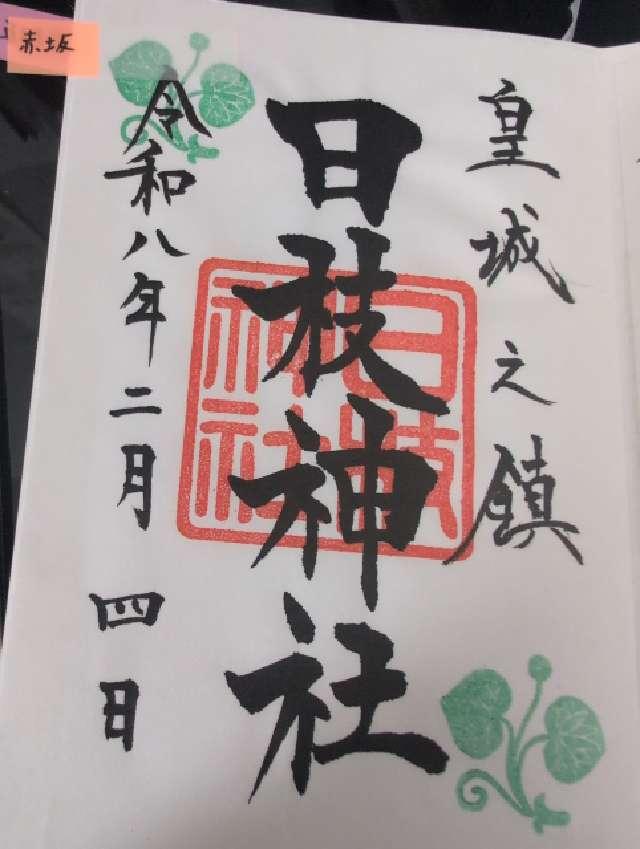 赤坂
皇城之鎮
日枝神社
日枝神社
令和八年二月四日